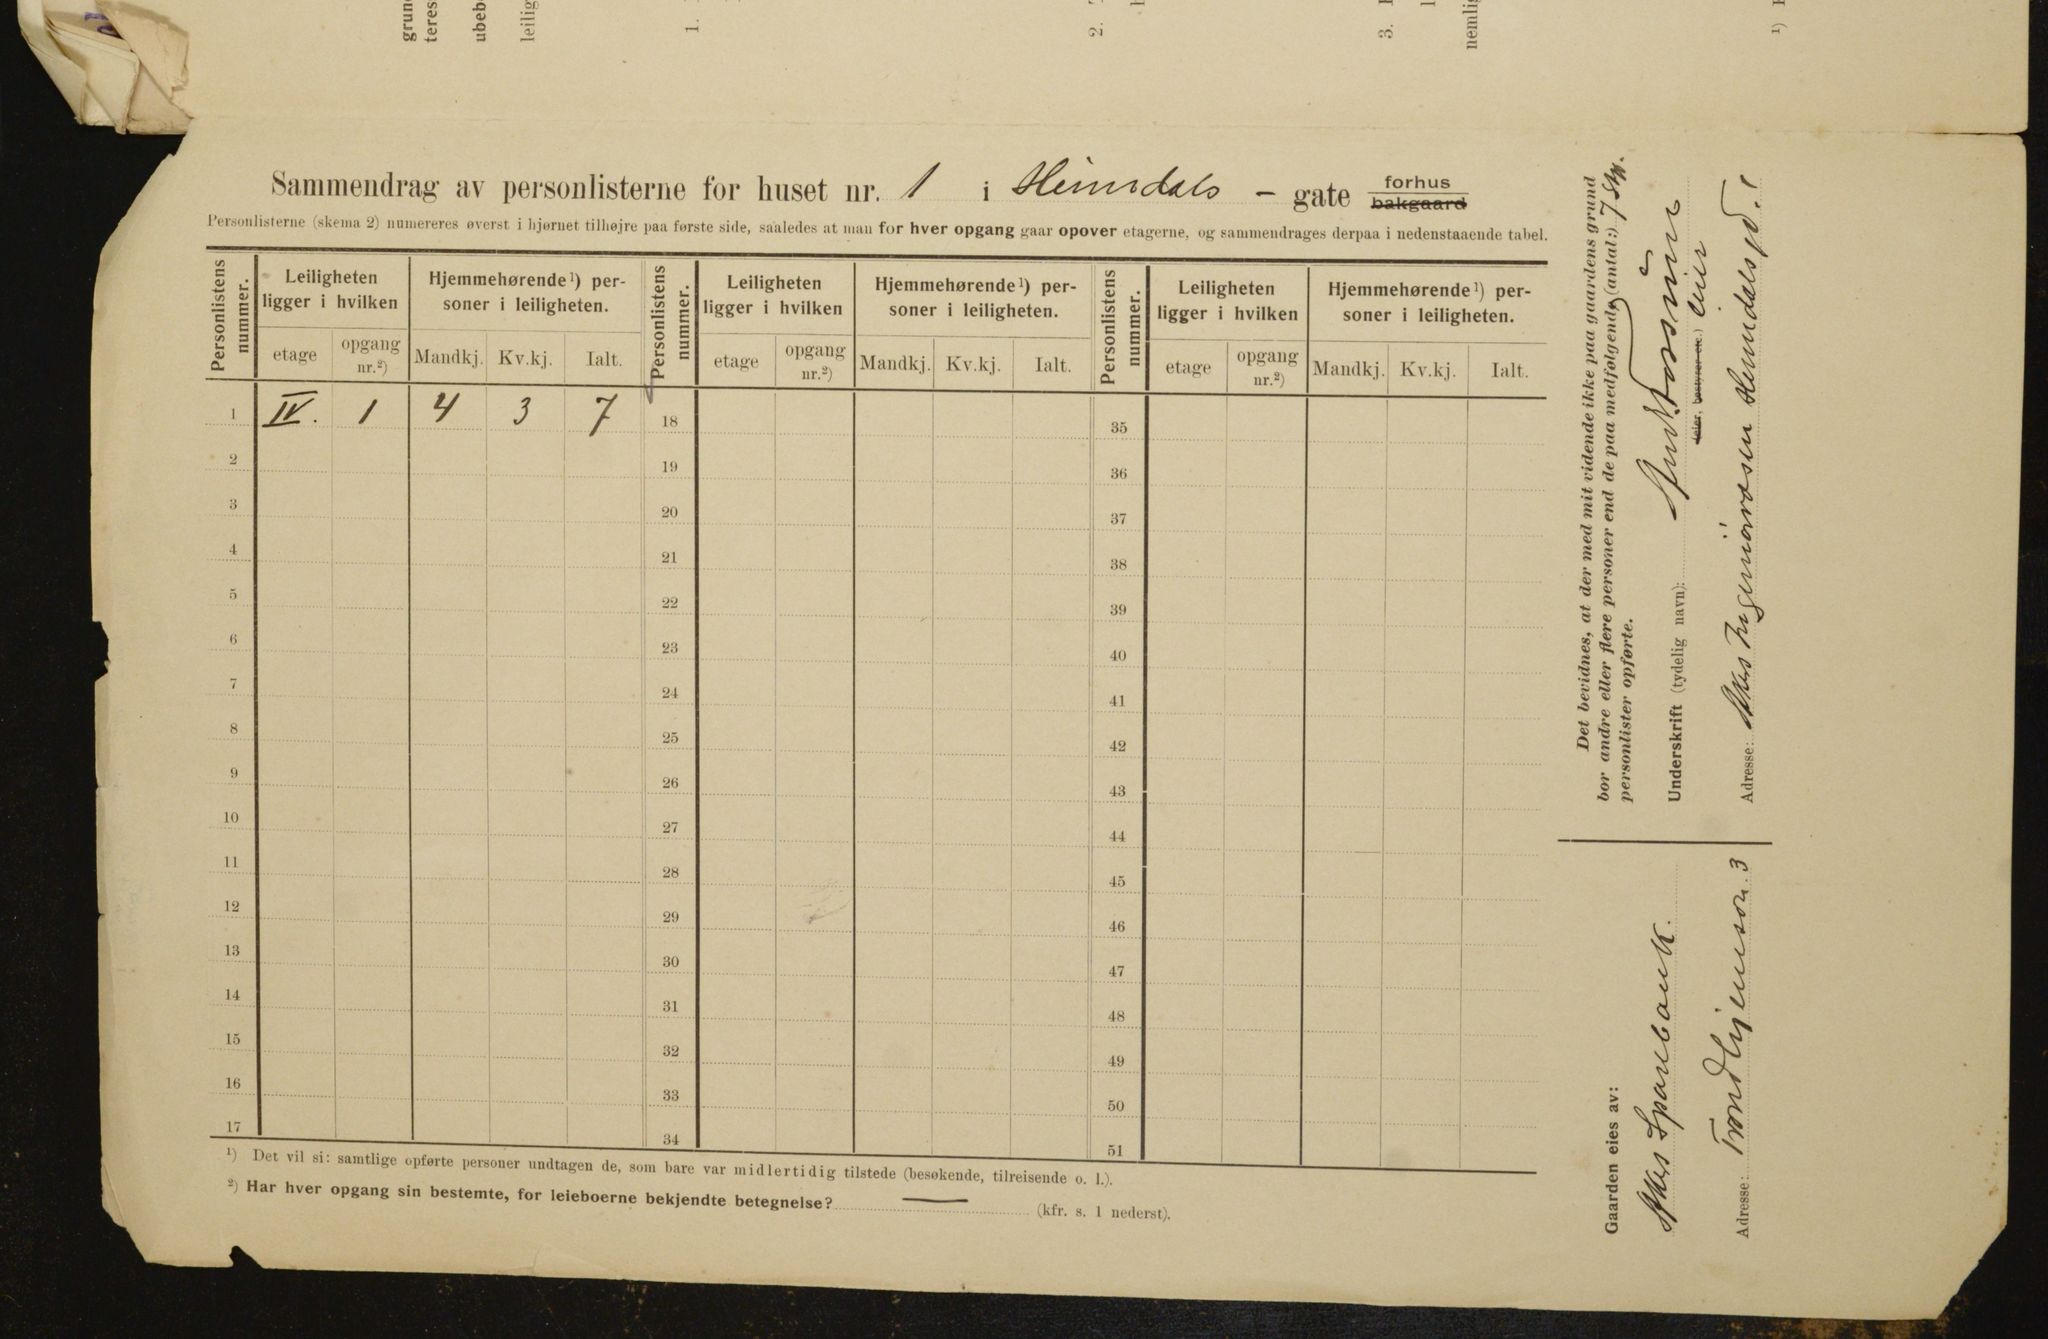 grund
teres
ubeb
leilig
1.
2.
3.
nemlig
¹)
Sammendrag av personlisterne for huset nr. 1 i Heimdals - gate forhus bakgaard
Personlisterne (skema 2) numereres øverst i hjørnet tilhøjre paa første side, saaledes at man for hver opgang gaar opover etagerne, og sammendrages derpaa i nedenstaaende tabel.
Personlistens nummer. Leiligheten ligger i hvilken Hjemmehørende¹) personer i leiligheten. Personlistens nummer. Leiligheten ligger i hvilken Hjemmehørende¹) personer i leiligheten. Personlistens nummer. Leiligheten ligger i hvilken Hjemmehørende¹) personer i leiligheten.
etage opgang nr.²) Mandkj. Kv.kj. Ialt. etage opgang nr.²) Mandkj. Kv.kj. Ialt. etage opgang nr.²) Mandkj. Kv.kj. Ialt.
1 IV. 1 4 3 7 18 35
2 19 36
3 20 37
4 21 38
5 22 39
6 23 40
7 24 41
8 25 42
9 26 43
10 27 44
11 28 45
12 29 46
13 30 47
14 31 48
15 32 49
16 33 50
17 34 51
¹) Det vil si: samtlige opførte personer undtagen de, som bare var midlertidig tilstede (besøkende, tilreisende o. l.).
²) Har hver opgang sin bestemte, for leieboerne bekjendte betegnelse? — (kfr. s. 1 nederst).
Det bevidnes, at der med mit vidende ikke paa gaardens grund
bor andre eller flere personer end de paa medfølgende (antal:) 7
personlister opførte.
Underskrift (tydelig navn):
(eier, bestyrer etc.) leier
Adresse: Heimdalsgd. 1
Gaarden eies av:
Akers Sparebank.
Adresse: Trondhjemsvn. 3